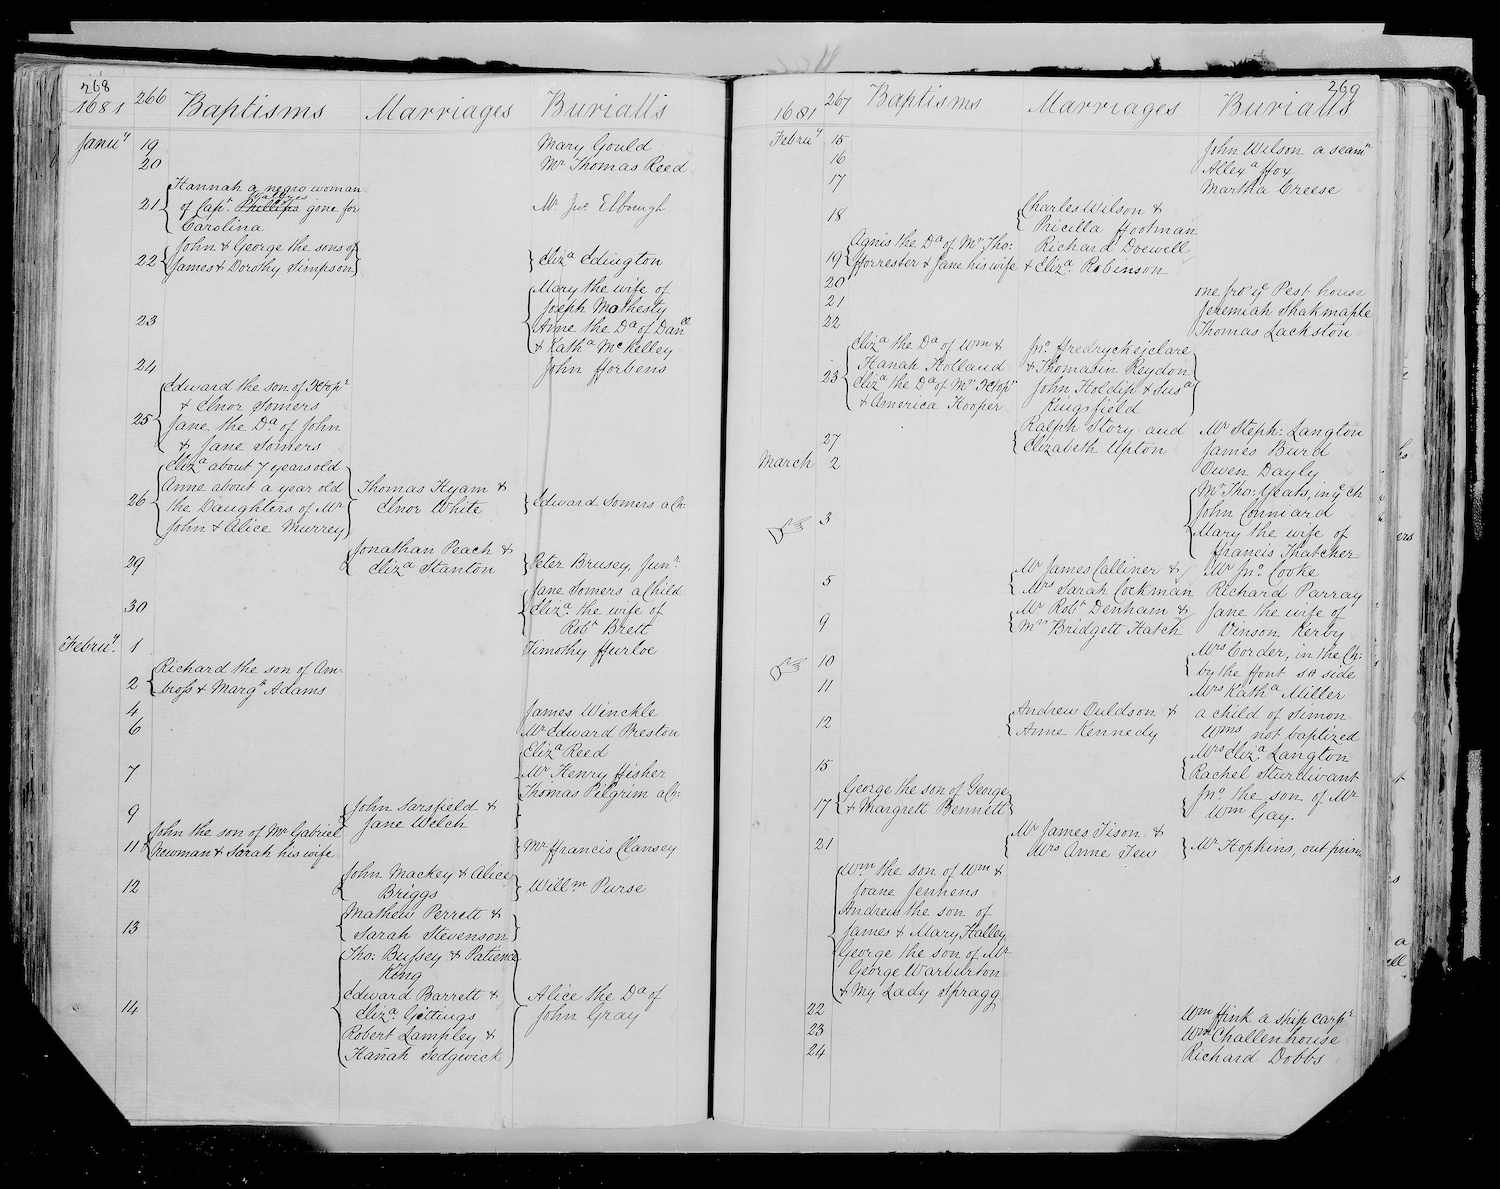 268
1681 266 Baptisms Marriages Burialls
Janu^y 19 Mary Gould
20 M^r Thomas Reed
Hannah a negro woman
21 of Cap^t Phillips gone for M^r Jn^o Elbough
Carolina
John & George the sons of
22 James & Dorothy Simpson Eliz^a Edington
Mary the wife of
Joseph Mathesty
23 Anne the D^a of Dan^ll
& Kath^a McKelley
24 John fforbens
Edward the son of Xtop^r
& Elnor Somers
25 Jane the D^a of John
& Jane Somers
Eliz^a about 7 years old
Anne about a year old Thomas Hyam &
26 the Daughters of M^r Elnor White Edward Somers a Ch:
John & Alice Murrey
Jonathan Peach &
29 Eliz^a Stanton Peter Brusey Jun^r
Jane Somers a Child
30 Eliz^a the wife of
Rob^t Brett
Febru^y 1 Timothy ffurloe
Richard the son of Am-
2 bross & Marg^t Adams
4 James Winckle
6 M^r Edward Preston
Eliz^a Reed
7 M^r Henry ffisher
Thomas Pilgrim a C:
John Sarsfield &
9 Jane Welch
John the son of M^r Gabriel
11 Newman & Sarah his wife M^r ffrancis Clansey
John Mackey & Alice
12 Briggs Will^m Purse
Mathew Perrett &
13 Sarah Stevenson
Tho: Bussey & Patience
King
Edward Barrett & Alice the D^a of
14 Eliz^a Gittings John Gray
Robert Lampley &
Hanah Sedgwick
269
1681 267 Baptisms Marriages Burialls
Febru^y 15 John Wilson a seam^n
16 Allex^a ffox
17 Martha Creese
18 Charles Wilson &
Pricilla ffootman
Agnis the D^a of M^r Tho: Richard Doewell
19 fforrester & Jane his wife & Eliz^a Robinson
20 one fro y^e Pest house
21 Jeremiah Shakmaple
22 Thomas Lackston
Eliz^a the D^a of W^m & Jn^o ffredrychejclare
Hanah Holland & Thomasin Reydon
23 Eliz^a the D^a of M^r Xtop^r John Holdip & Sus^a
& America Hooper Kingsfield
27 Ralph Story and M^r Steph: Langton
Elizabeth Upton James Burd
March 2 Owen Dayly
M^r Tho: Yeats, in y^e Ch
3 John Conniard
Mary the wife of
ffrancis Thatcher
M^r James Calliner & M^r Jn^o Cooke
5 M^rs Sarah Cockman Richard Parray
M^r Rob^t Denham & Jane the wife of
9 M^rs Bridgett Hatch Vinson Kerby
10 M^rs Corder, in the Ch:
by the ffont so side
11 M^rs Kath^a Miller
Andrew Ouldson & a child of Simon
12 Anne Kennedy W^ms not baptized
M^rs Eliz^a Langton
15 Rachel Sturdivant
George the son of George Jn^o the son of M^r
17 & Margrett Bennett W^m Gay.
M^r James Tison &
21 M^rs Anne Tew M^r Hopkins, out prim
W^m the son of W^m &
Joane Jennens
Andrew the son of
James & Mary Halley
George the son of M^r
George Warburton
& My Lady Spragg
22 W^m ffink a ship carp^r
23 W^m Challenhouse
24 Richard Dobbs